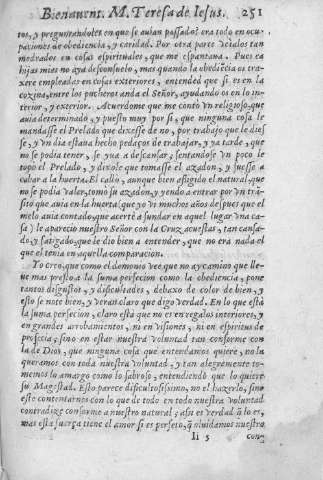 Bienauent. M. Teresa de Iesus. 251
tos, y preguntandoles en que se auian passado? era todo en ocu-
paciones de obediencia, y caridad. Por otra parte veialos tan
medrados en cosas espirituales, que me espantaua. Pues ea
hijas mias no aya desconsuelo, mas quando la obediẽcia os tra-
xere empleadas en cosas exteriores, entended que si es en la
cozina, entre los pucheros anda el Señor, ayudando os en lo in-
terior, y exterior. Acuerdome que me contò vn religioso, que
auia determinado, y puesto muy por si, que ninguna cosa le
mandasse el Prelado que dixesse de no, por trabajo que le dies-
se, y vn dia estaua hecho pedaços de trabajar, y ya tarde, que
no se podia tener, se yua a descansar, sentandose vn poco le
topò el Prelado, y dixole que tomasse el açadon, y fuesse a
cabar a la huerta. El callò, aunque bien afligido el natural, que
no se podia valer, tomò su açadon, y yendo a entrar por vn trã-
sito que auia en la huerta (que yo vi muchos años despues que el
melo auia contado, que acertè a fundar en aquel lugar vna ca-
sa) le apareciò nuestro Señor con la Cruz acuestas, tan cansa-
do, y fatigado, que le dio bien a entender, que no era nada el
que el tenia en aquella comparacion.
Yo creo, que como el demonio vee que no ay camino que lle-
ue mas presto, a la suma perfecion como la obediencia, pone
tantos disgustos, y dificultades, debaxo de color de bien, y
esto se note bien, y veran claro que digo verdad. En lo que està
la suma perfecion, claro està que no es en regalos interiores, y
en grandes arrobamientos, ni en visiones, ni en espiritu de
profecia; sino en estar nuestra voluntad tan conforme con
la de Dios, que ninguna cosa que entendamos quiere, no la
queramos con toda nuestra voluntad, y tan alegremente to-
memos lo amargo como lo sabroso, entendiendo que lo quiere
su Magestad. Esto parece dificultosissimo, no el hazerlo, sino
este contentarnos con lo que de todo en todo nuestra voluntad
contradize conforme a nuestro natural; assi es verdad q̃ lo es,
mas esta fuerça tiene el amor si es perfeto, q̃ oluidamos nuestro
Ii 5 con-